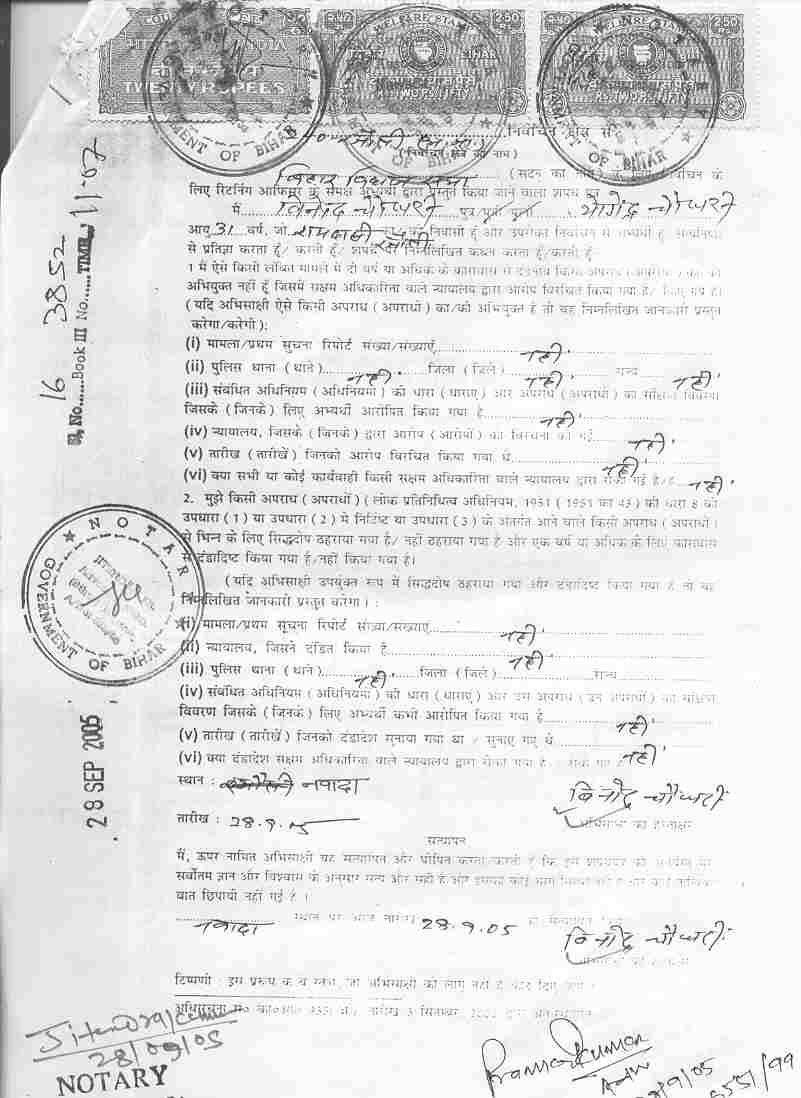 INDIA
TWENTY RUPEES
BIHAR
2.50
RS. TWO PS. FIFTY
2.50
RS. TWO PS. FIFTY
GOVERNMENT OF BIHAR
OF BIHAR
OF BIHAR
निर्वाचन क्षेत्र से
(निर्वाचन क्षेत्र का नाम)
बिहार विधान सभा (सदन का नाम) के लिए निर्वाचन के
लिए रिटर्निंग आफिसर के समक्ष अभ्यर्थी द्वारा प्रस्तुत किया जाने वाला शपथ पत्र
मैं विनोद चौधरी पुत्र/पुत्री/पत्नी योगेंद्र चौधरी
आयु 31 वर्ष, जो का निवासी हूँ और उपरोक्त निर्वाचन से अभ्यर्थी हूँ, सत्यनिष्ठा
से प्रतिज्ञा करता हूँ/ करती हूँ/ शपथ पर निम्नलिखित कथन करता हूँ/करती हूँ:
1 मैं ऐसे किसी लंबित मामले में दो वर्ष या अधिक के कारावास से दंडनीय किसी अपराध (अपराधों) का/की
अभियुक्त नहीं हूँ जिसमें सक्षम अधिकारिता वाले न्यायालय द्वारा आरोप विरचित किया गया है/ किए गए हैं।
(यदि अभिसाक्षी ऐसे किसी अपराध (अपराधों) का/की अभियुक्त है तो वह निम्नलिखित जानकारी प्रस्तुत
करेगा/करेगी);
(i) मामला/प्रथम सूचना रिपोर्ट संख्या/संख्याएँ नहीं
(ii) पुलिस थाना (थाने) नहीं जिला (जिले) नहीं राज्य नहीं
(iii) संबंधित अधिनियम (अधिनियमों) की धारा (धाराएं) और अपराध (अपराधों) का संक्षिप्त विवरण
जिसके (जिनके) लिए अभ्यर्थी आरोपित किया गया है नहीं
(iv) न्यायालय, जिसके (जिनके) द्वारा आरोप (आरोपों) की विरचना की गई नहीं
(v) तारीख (तारीखें) जिनको आरोप विरचित किया गया थे नहीं
(vi) क्या सभी या कोई कार्यवाही किसी सक्षम अधिकारिता वाले न्यायालय द्वारा रोकी गई है/हैं नहीं
2. मुझे किसी अपराध (अपराधों) (लोक प्रतिनिधित्व अधिनियम, 1951 (1951 का 43) की धारा 8 की
उपधारा (1) या उपधारा (2) में निर्दिष्ट या उपधारा (3) के अंतर्गत आने वाले किसी अपराध (अपराधों)
से भिन्न के लिए सिद्धदोष ठहराया गया है/ नहीं ठहराया गया है और एक वर्ष या अधिक के लिए कारावास
से दंडादिष्ट किया गया है/नहीं किया गया है।
(यदि अभिसाक्षी उपर्युक्त रूप में सिद्धदोष ठहराया गया और दंडादिष्ट किया गया है तो वह
निम्नलिखित जानकारी प्रस्तुत करेगा) :
(i) मामला/प्रथम सूचना रिपोर्ट संख्या/संख्याएं नहीं
(ii) न्यायालय, जिसने दंडित किया है नहीं
(iii) पुलिस थाना (थाने) नहीं जिला (जिले) राज्य
(iv) संबंधित अधिनियम (अधिनियमों) की धारा (धाराएं) और उस अपराध (उन अपराधों) का संक्षिप्त
विवरण जिसके (जिनके) लिए अभ्यर्थी कभी आरोपित किया गया है नहीं
(v) तारीख (तारीखें) जिनको दंडादेश सुनाया गया था / सुनाए गए थे नहीं
(vi) क्या दंडादेश सक्षम अधिकारिता वाले न्यायालय द्वारा रोका गया है नहीं
स्थान : नवादा
विनोद चौधरी
तारीख : 28.9.05
अभिसाक्षी का हस्ताक्षर
सत्यापन
मैं, ऊपर नामित अभिसाक्षी यह सत्यापित और घोषित करता/करती हूँ कि इस शपथपत्र की अंतर्वस्तु मेरे
सर्वोत्तम ज्ञान और विश्वास के अनुसार सत्य और सही है और इसका कोई भाग मिथ्या नहीं है और कोई तात्विक
बात छिपायी नहीं गई है।
नवादा स्थान पर आज तारीख 28.9.05 को सत्यापित
विनोद चौधरी
टिप्पणी : इस प्ररूप के वे स्तंभ, जो अभिसाक्षी को लागू नहीं है काट दिए जाएं।
Book III No. TIME
16 3852 11-07
NOTARY
GOVERNMENT OF BIHAR
28 SEP 2005
28/09/05
NOTARY
Pramod Kumar
Adv
6551/99